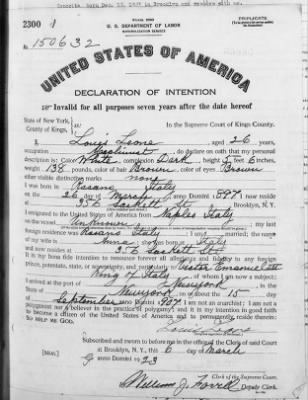 Concetta born Dec. 13, 1927 in Brooklyn and resides with me.
TRIPLICATE
2300
U. S. DEPARTMENT OF LABOR
NATURALIZATION SERVICE
No. 150632
UNITED STATES OF AMERICA
DECLARATION OF INTENTION
Invalid for all purposes seven years after the date hereof
State of New York,
County of Kings,
ss:
In the Supreme Court of Kings County.
I, Louis Leone, aged 26 years,
occupation Machinist, do declare on oath that my personal
description is: Color White, complexion Dark, height 5 feet 6 inches,
weight 138 pounds, color of hair Brown, color of eyes Brown
other visible distinctive marks none
I was born in Italy
on the 26 day of March, anno Domini 1897; I now reside
at Sackett St, Brooklyn, N.Y.
I emigrated to the United States of America from Naples Italy
on the vessel Unknown; my last
foreign residence was Italy; I am married; the name
of my wife is; she was born in Italy
and now resides at Sackett St
It is my bona fide intention to renounce forever all allegiance and fidelity to any foreign
prince, potentate, state, or sovereignty, and particularly to Victor Emanuel III
King of Italy, of whom I am now a subject;
I arrived at the port of New York, in the
State of New York, on or about the 15 day
of September, anno Domini 1907; I am not an anarchist; I am not a
polygamist nor a believer in the practice of polygamy; and it is my intention in good faith
to become a citizen of the United States of America and to permanently reside therein:
SO HELP ME GOD.
Louis Leone
Subscribed and sworn to before me in the office of the Clerk of said Court
at Brooklyn, N.Y., this 6 day of March
anno Domini 1923
Clerk of the Supreme Court.
William J. Deputy Clerk.